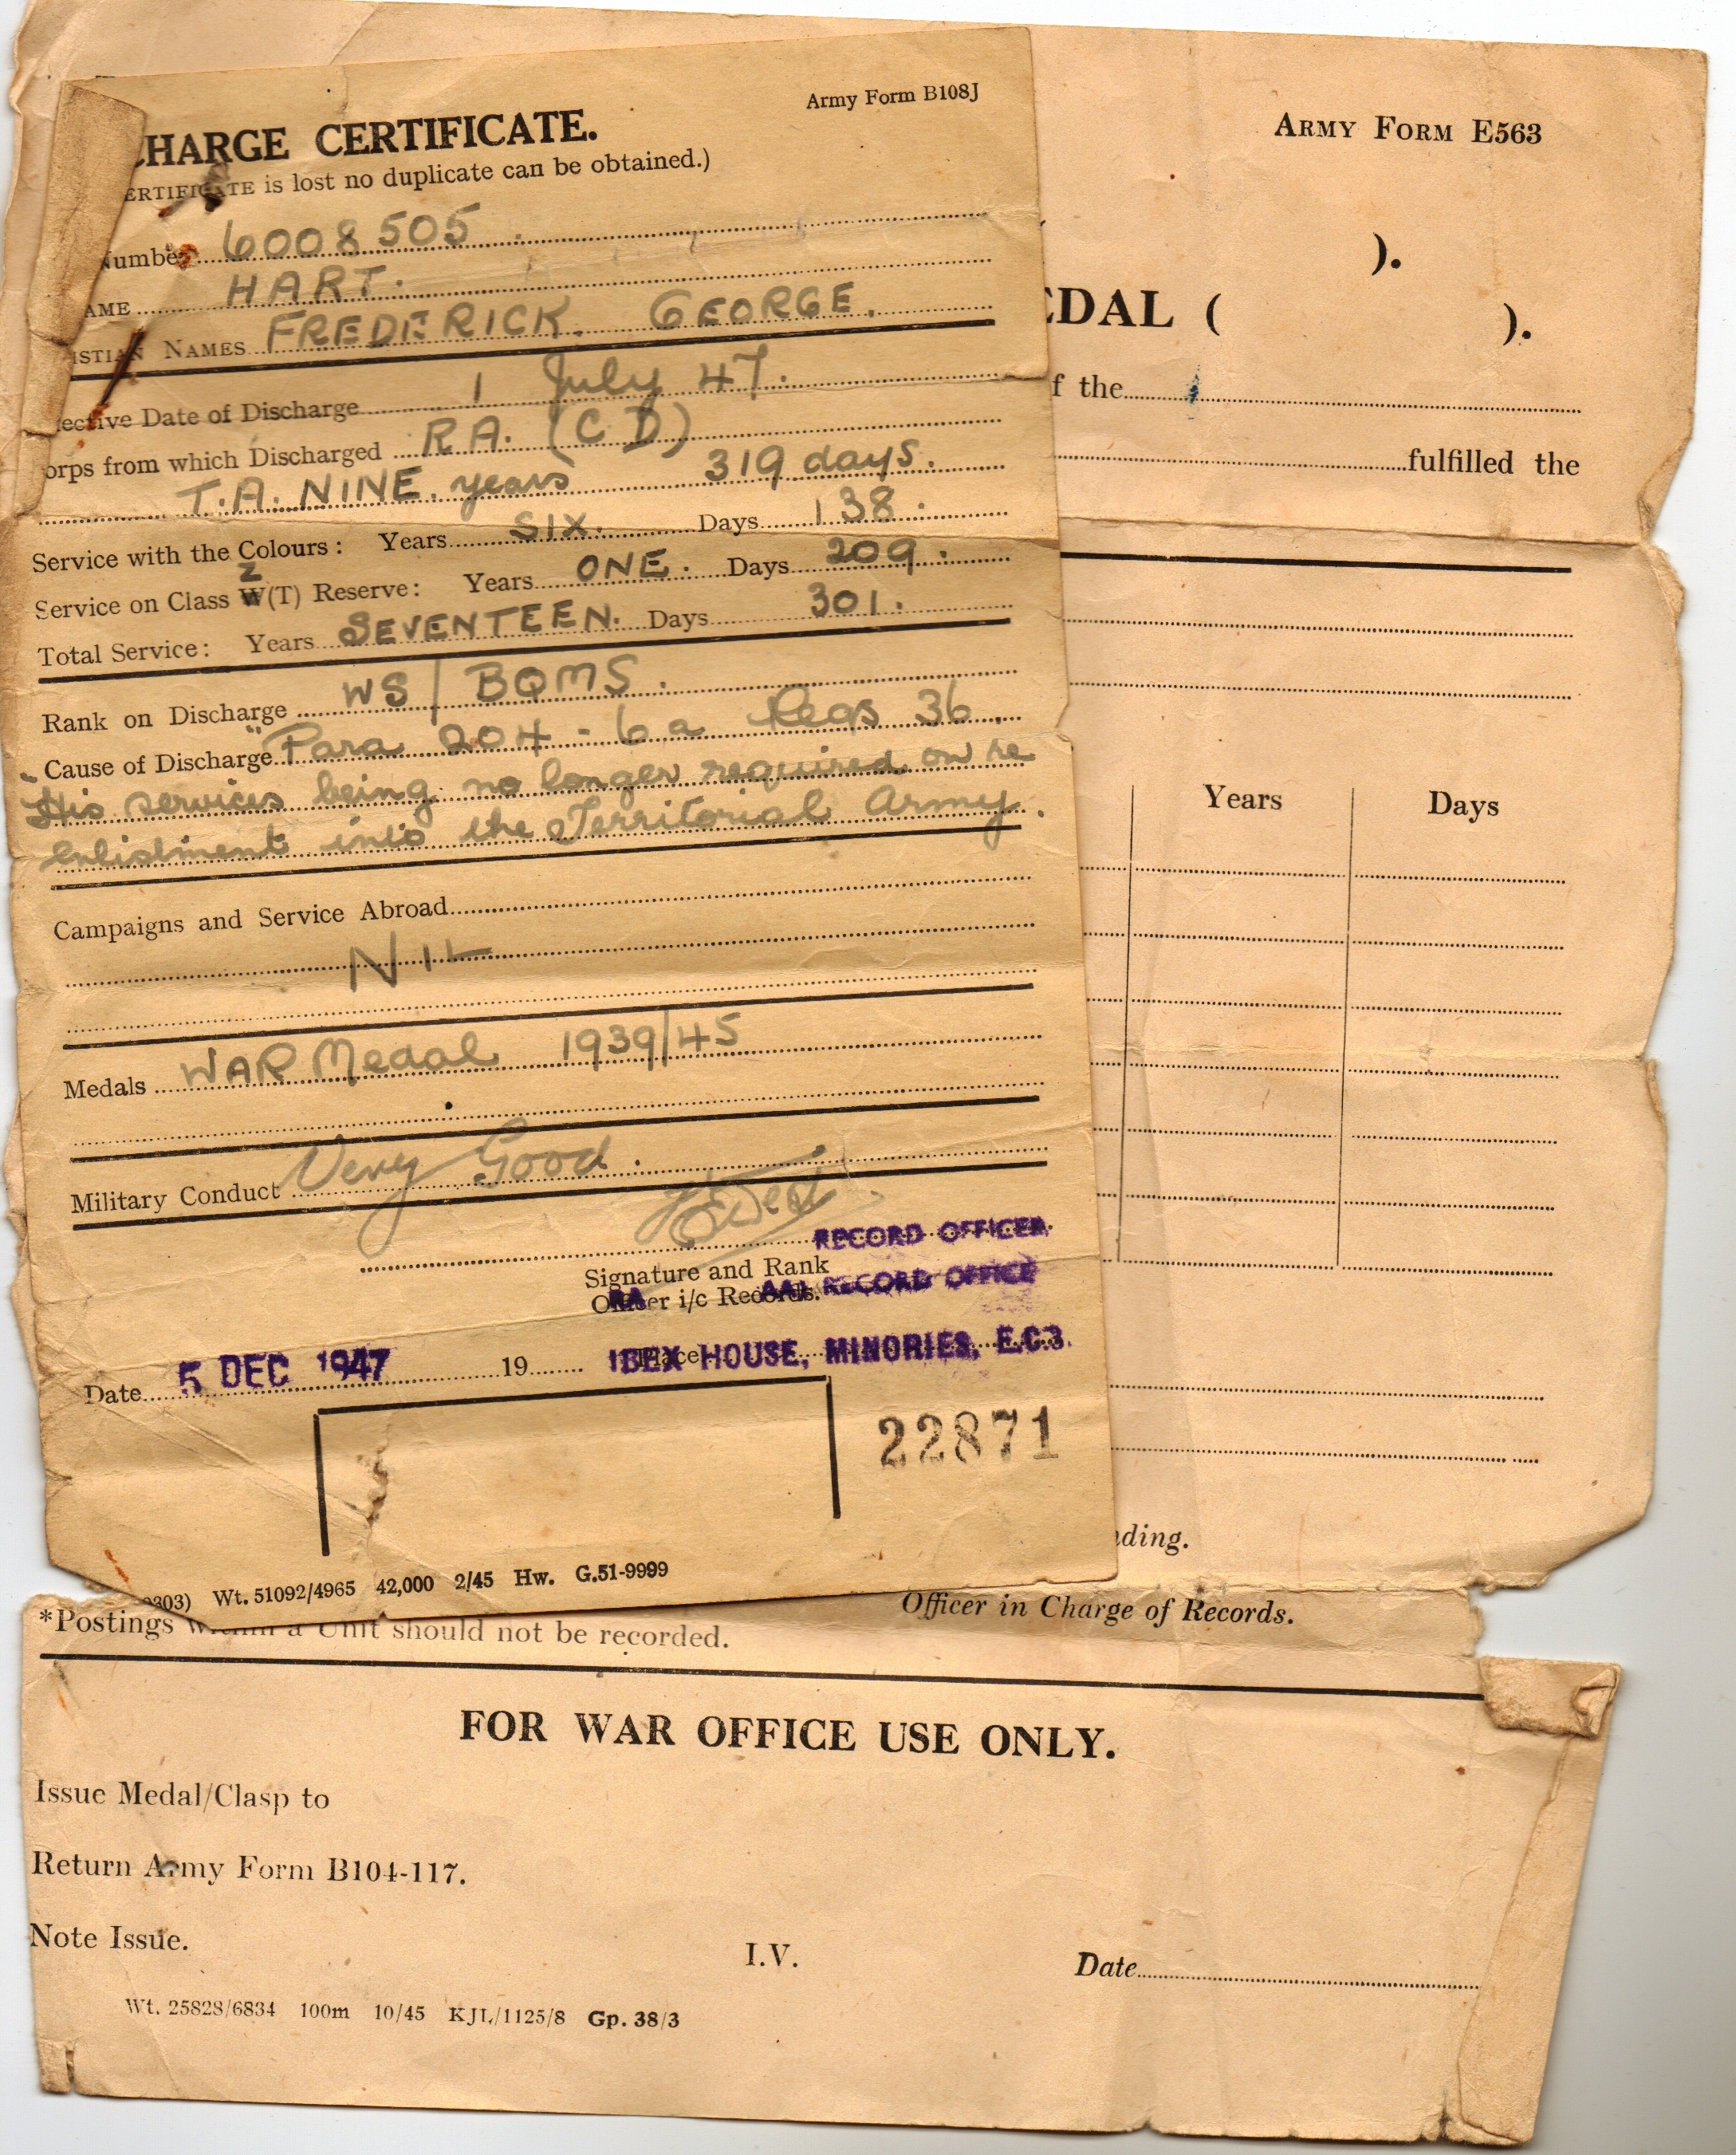 Army Form B108J
CHARGE CERTIFICATE.
ERTIFICATE is lost no duplicate can be obtained.)
Number 6008505
AME HART.
ISTIAN NAMES FREDERICK. GEORGE.
ective Date of Discharge 1 July 47.
orps from which Discharged RA. (CD)
T.A. NINE. years 319 days.
Service with the Colours: Years SIX. Days 138.
Service on Class Z W(T) Reserve: Years ONE. Days 209.
Total Service: Years SEVENTEEN. Days 301.
Rank on Discharge WS/BQMS.
Cause of Discharge "Para 204-6a Regs 36.
"His services being no longer required on re
enlistment into the Territorial Army.
Campaigns and Service Abroad
NIL
Medals WAR Medal 1939/45
Military Conduct Very Good.
RECORD OFFICER.
Signature and Rank
Officer i/c Records.
RA AA RECORD OFFICE
Date 5 DEC 1947 19 Place IBEX HOUSE, MINORIES, E.C.3.
22871
303) Wt. 51092/4965 42,000 2/45 Hw. G.51-9999
ARMY FORM E563
).
EDAL ( ).
f the
fulfilled the
Years Days
ding.
Officer in Charge of Records.
*Postings within a Unit should not be recorded.
FOR WAR OFFICE USE ONLY.
Issue Medal/Clasp to
Return Army Form B104-117.
Note Issue.
I.V. Date
Wt. 25828/6834 100m 10/45 KJL/1125/8 Gp. 38/3